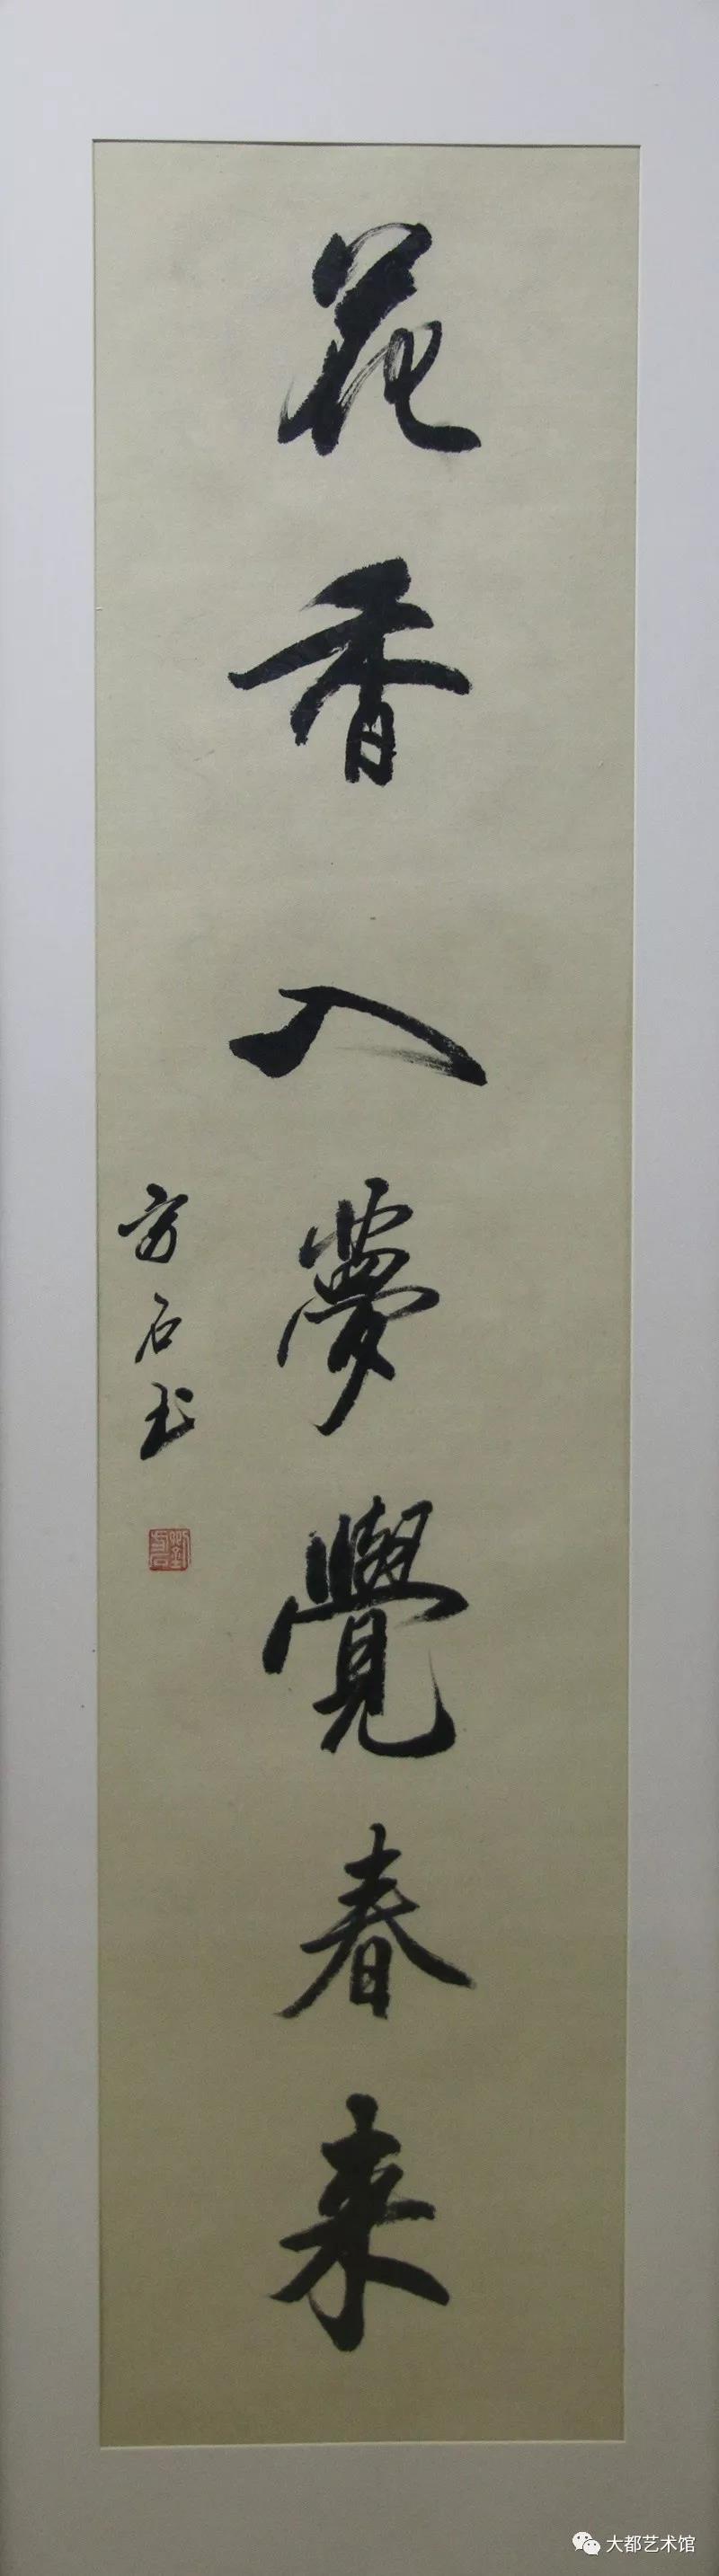 花香入夢覺春来
方石書
大都艺术馆